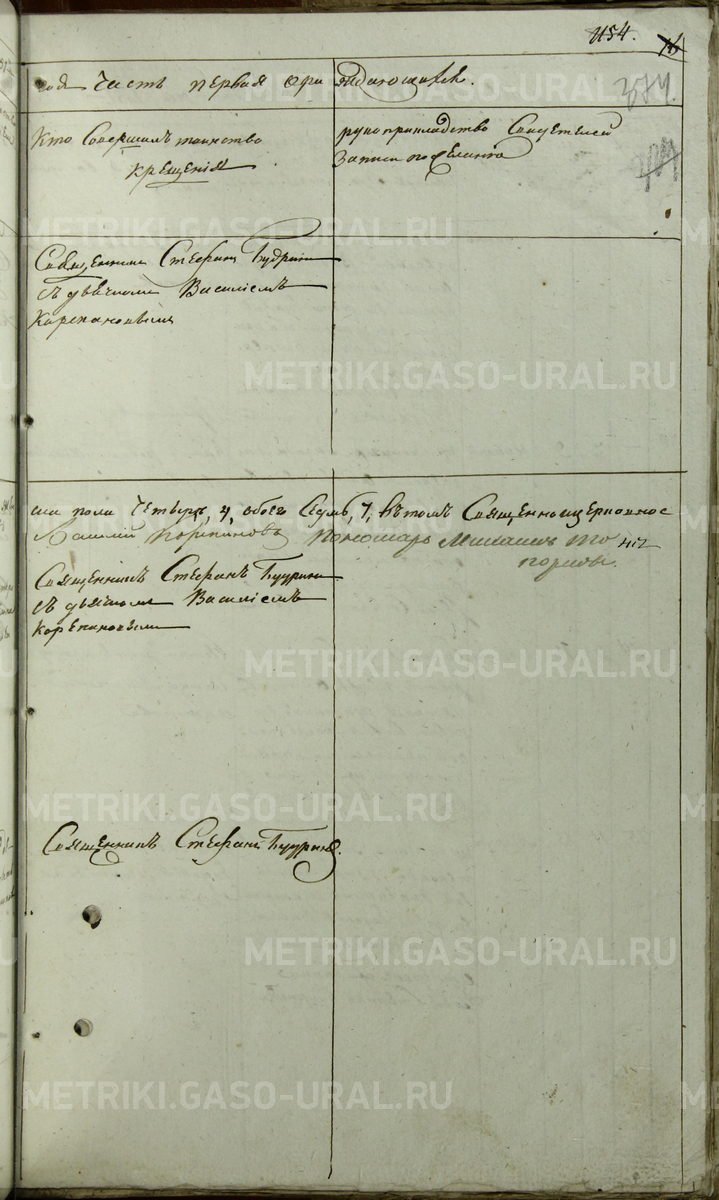 1154. 16
374.
года Часть первая о раждающихся.
Кто Совершалъ таинство
крещенія
рукоприкладство Свидетелей
Записи по желанію
Священникъ Стефанъ Будринъ
Съ дьячкомъ Василіемъ
Корепановымъ
пола Четыре, 4, обоего Семь, 7, вѣтомъ Священноцерковнос
Василій Корепановъ Пономарь Михаилъ То
412
порковъ.
Священникъ Стефанъ Будринъ
Съ дьячкомъ Василіемъ
Корепановымъ
Священникъ Стефанъ Будринъ.
METRIKI.GASO-URAL.RU